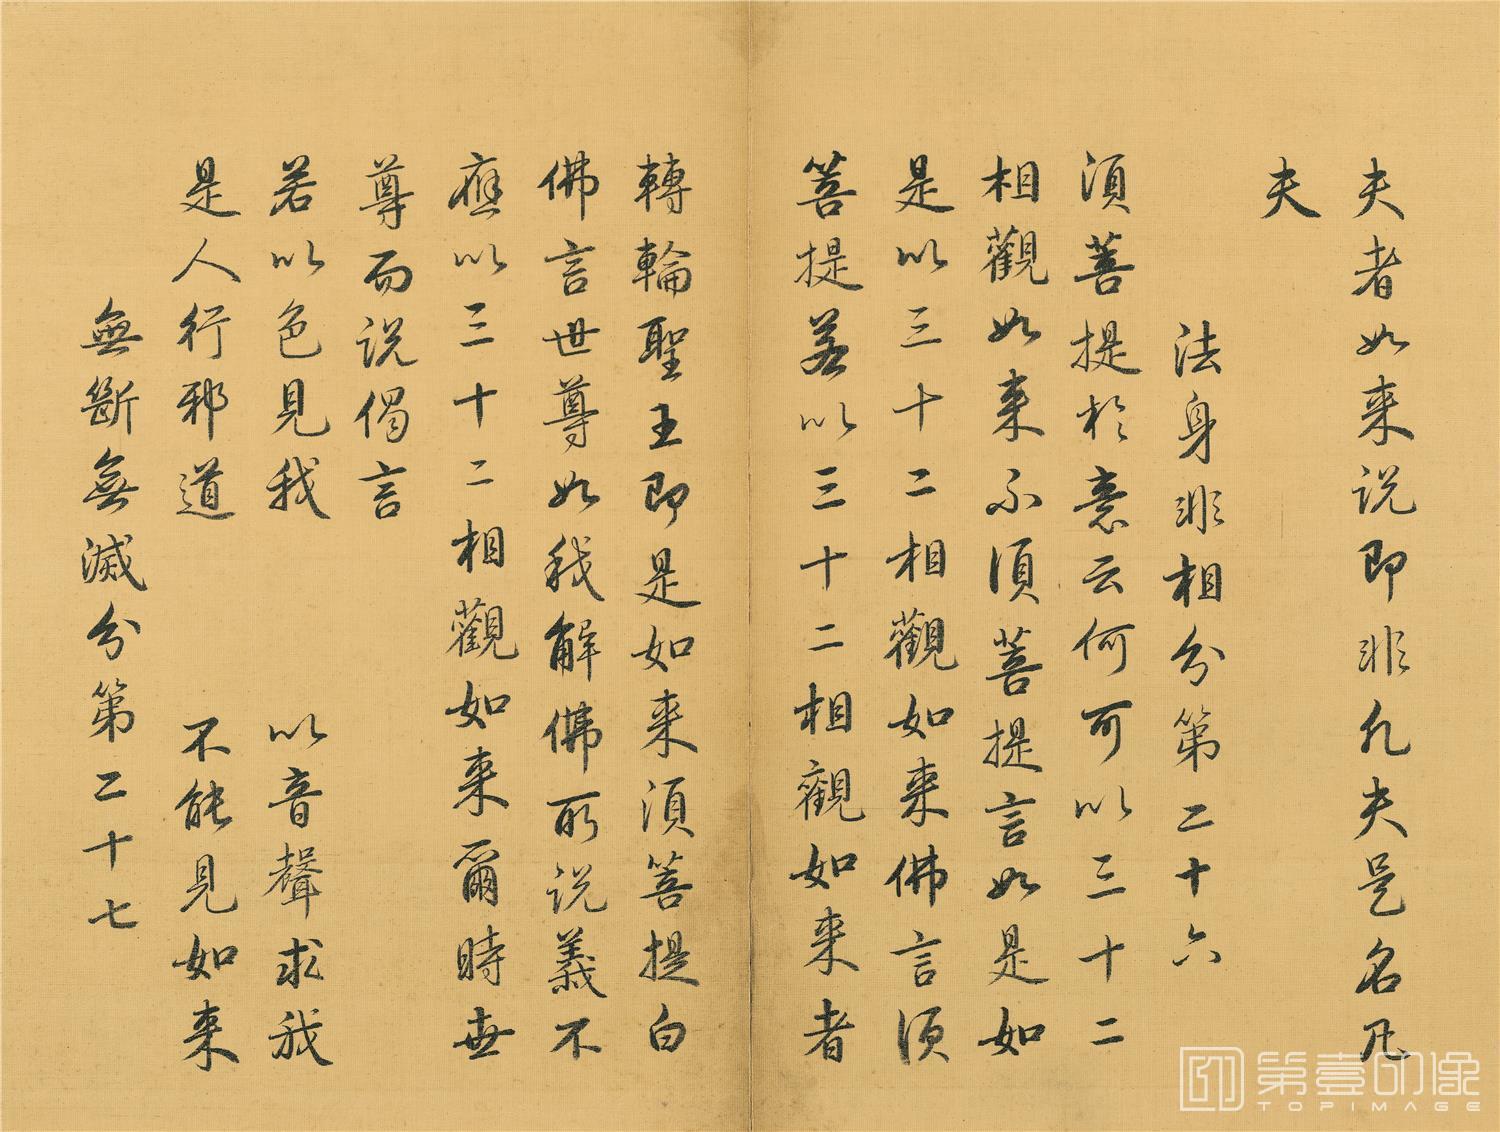 夫者如来说即非凡夫是名凡
夫
法身非相分第二十六
須菩提於意云何可以三十二
相觀如来不須菩提言如是如
是以三十二相觀如来佛言須
菩提若以三十二相觀如来者
轉輪聖王即是如来須菩提白
佛言世尊如我解佛所说義不
應以三十二相觀如来爾時世
尊而说偈言
若以色見我 以音聲求我
是人行邪道 不能見如来
無斷無滅分第二十七
第壹印像
TOPIMAGE